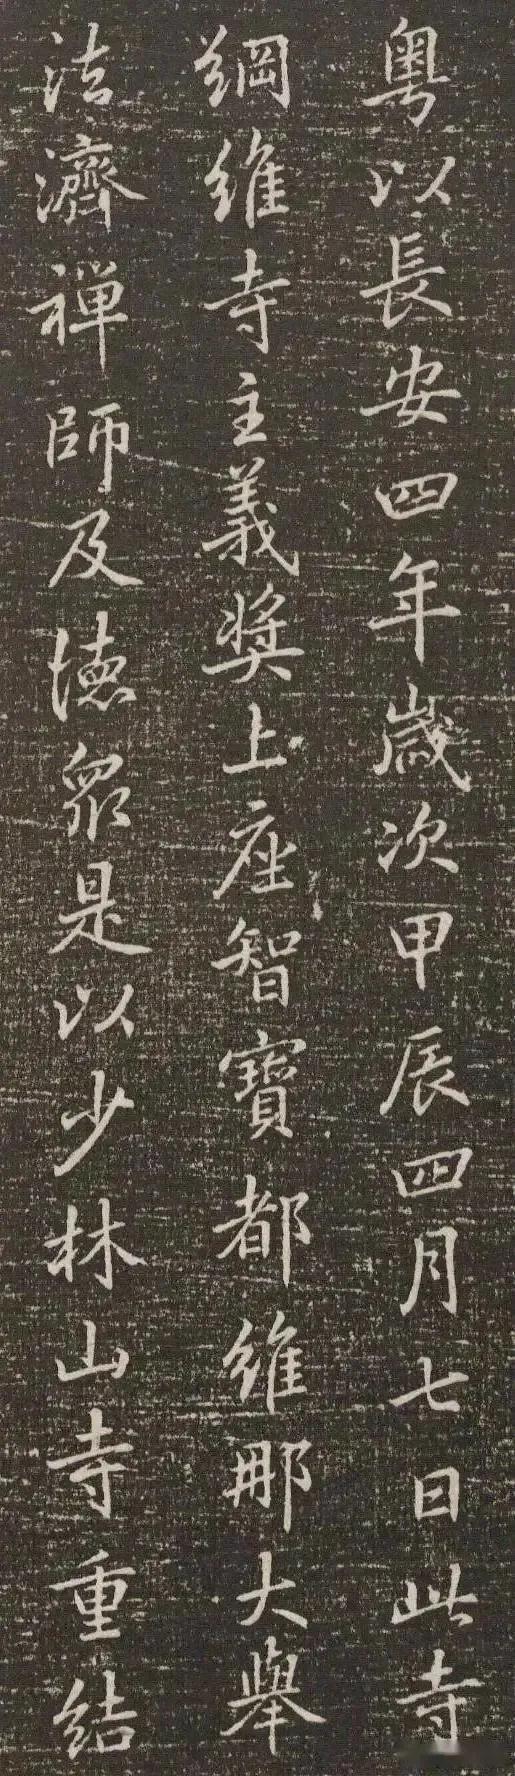 粤以長安四年歲次甲辰四月七日此寺
綱維寺主義奬上座智寶都維那大舉
法濟禅師及徳眾是以少林山寺重結